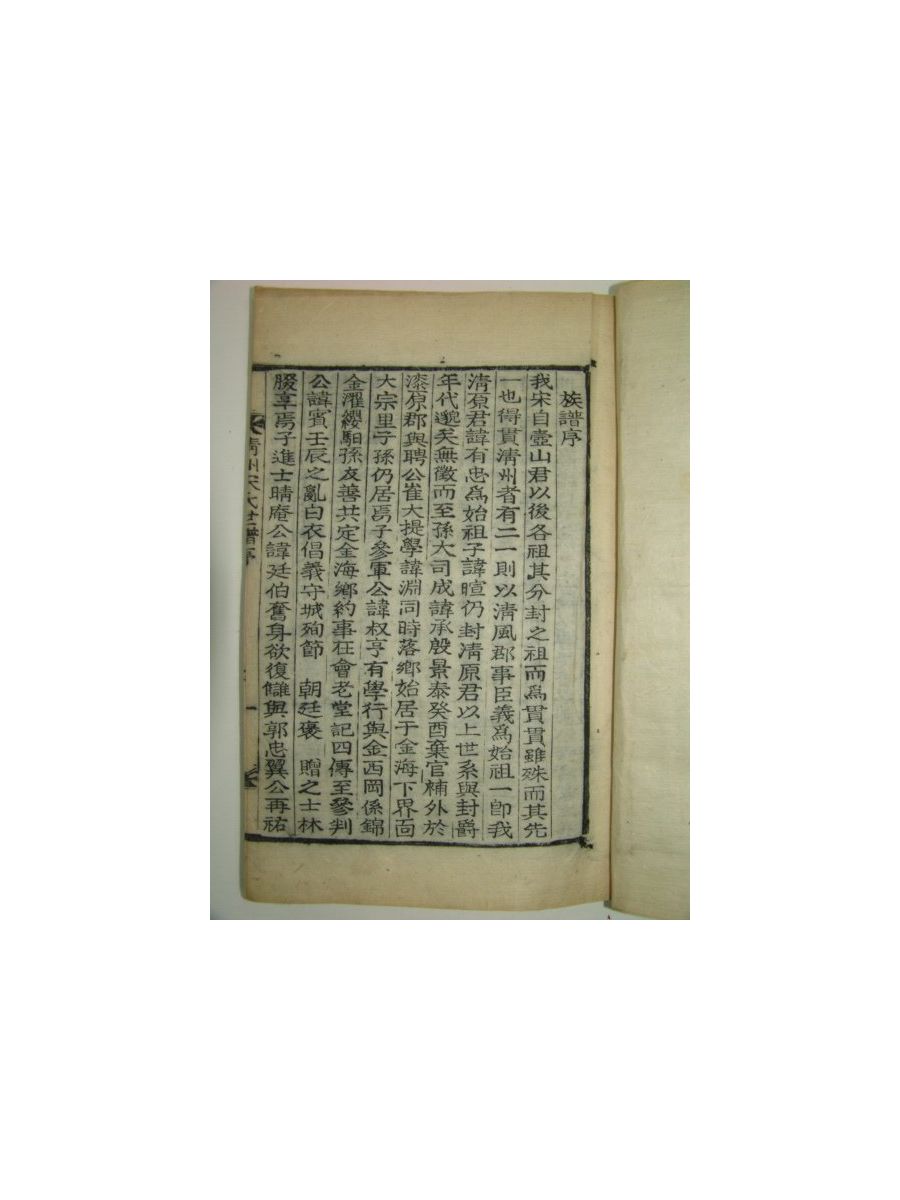 族譜序
我宋自壺山君以後各祖其分封之祖而爲貫貫雖殊而其先
一也得貫淸州者有二一則以淸風郡事臣義爲始祖一卽我
淸原君諱有忠爲始祖子諱暄仍封淸原君以上世系與封爵
年代邈矣無徵而至孫大司成諱承殷景泰癸酉棄官補外於
漆原郡與聘公崔大提學諱淵同時落鄕始居于金海下界面
大宗里子孫仍居焉子參軍公諱叔亨有學行與金西岡係錦
金濯纓馹孫友善共定金海鄕約事在會老堂記四傳至參判
公諱賓壬辰之亂白衣倡義守城殉節 朝廷褒 贈之士林
腏享焉子進士晴庵公諱廷伯奮身欲復讎與郭忠翼公再祐
淸州宋氏世譜序
一